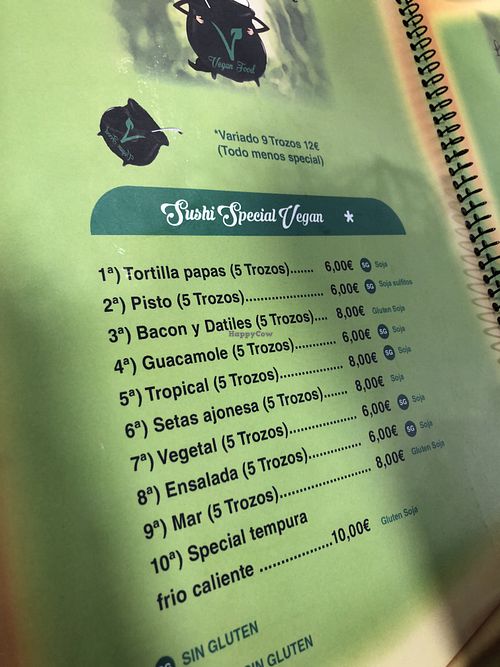 V
Vegan Food
V
*Variado 9 Trozos 12€
(Todo menos special)
Sushi Special Vegan *
1ª) Tortilla papas (5 Trozos)....... 6,00€ SG Soja
2ª) Pisto (5 Trozos)...................... 6,00€ SG Soja sulfitos
3ª) Bacon y Datiles (5 Trozos).... 8,00€ Gluten Soja
4ª) Guacamole (5 Trozos)........... 6,00€ SG Soja
5ª) Tropical (5 Trozos)................. 8,00€ SG Soja
6ª) Setas ajonesa (5 Trozos)....... 8,00€ Soja
7ª) Vegetal (5 Trozos).................. 6,00€ SG Soja
8ª) Ensalada (5 Trozos)............... 6,00€ SG Soja
9ª) Mar (5 Trozos)........................ 8,00€ Gluten Soja
10ª) Special tempura
frio caliente .................10,00€ Gluten Soja
SG SIN GLUTEN
SIN GLUTEN
HappyCow